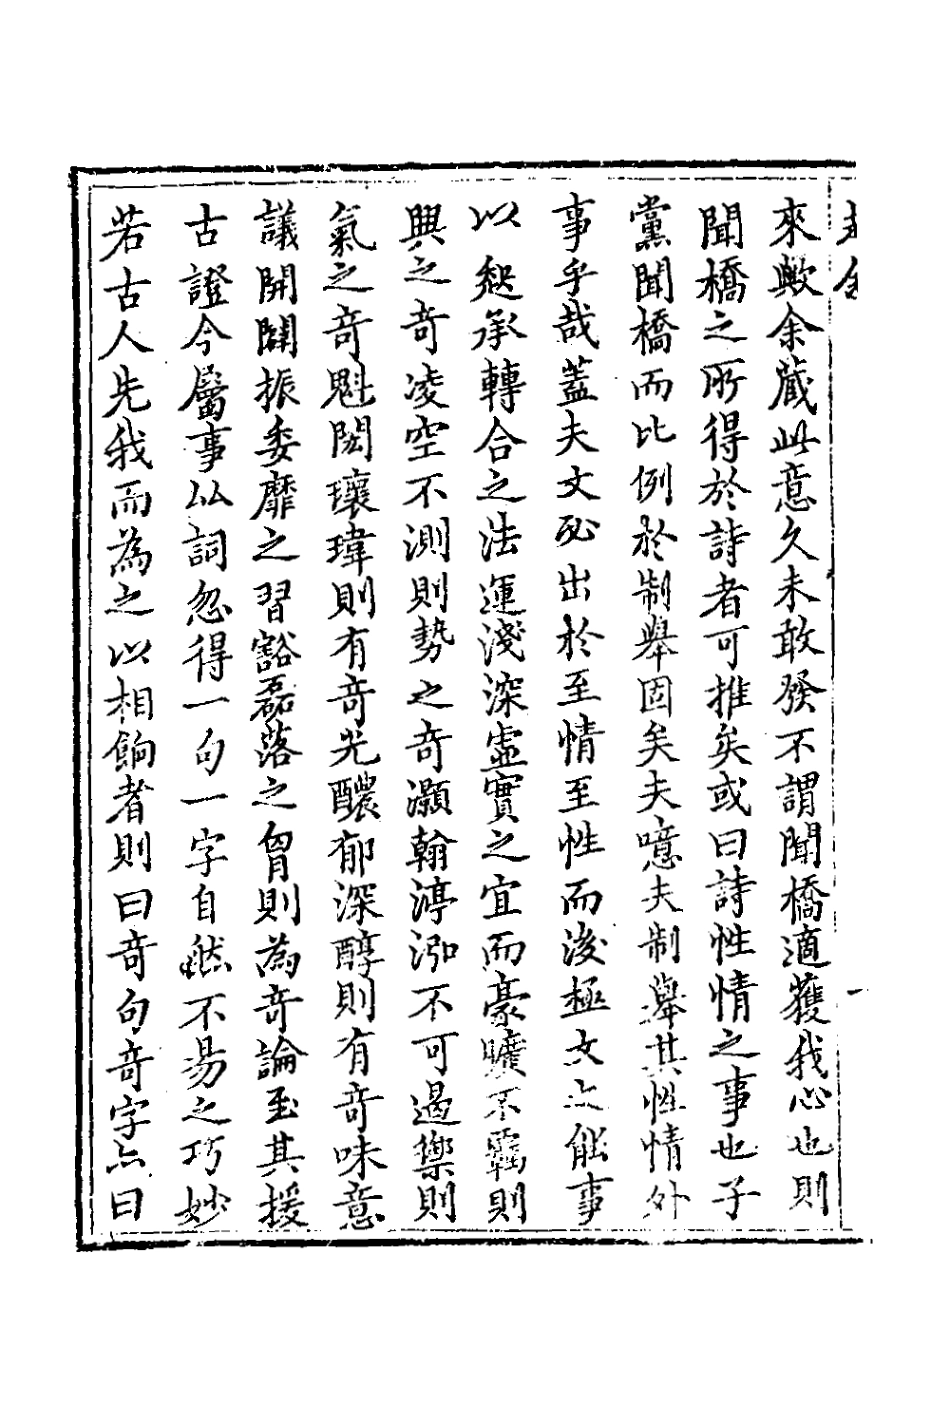 來歟余藏此意久未敢發不謂聞橋適獲我心也則
聞橋之所得於詩者可推矣或曰詩性情之事也子
黨聞橋而比例於制舉固矣夫噫夫制舉其性情外
事乎哉蓋夫文必出於至情至性而後極文之能事
以起承轉合之法運淺深虛實之宜而豪曠不羈則
興之奇凌空不測則勢之奇灝瀚渟泓不可遏禦則
氣之奇魁閎瓌瑋則有奇光醲郁深醇則有奇味意
議開闢振委靡之習豁磊落之胷則為奇論至其援
古證今屬事以詞忽得一句一字自然不易之巧妙
若古人先我而為之以相餉者則曰奇句奇字亦曰